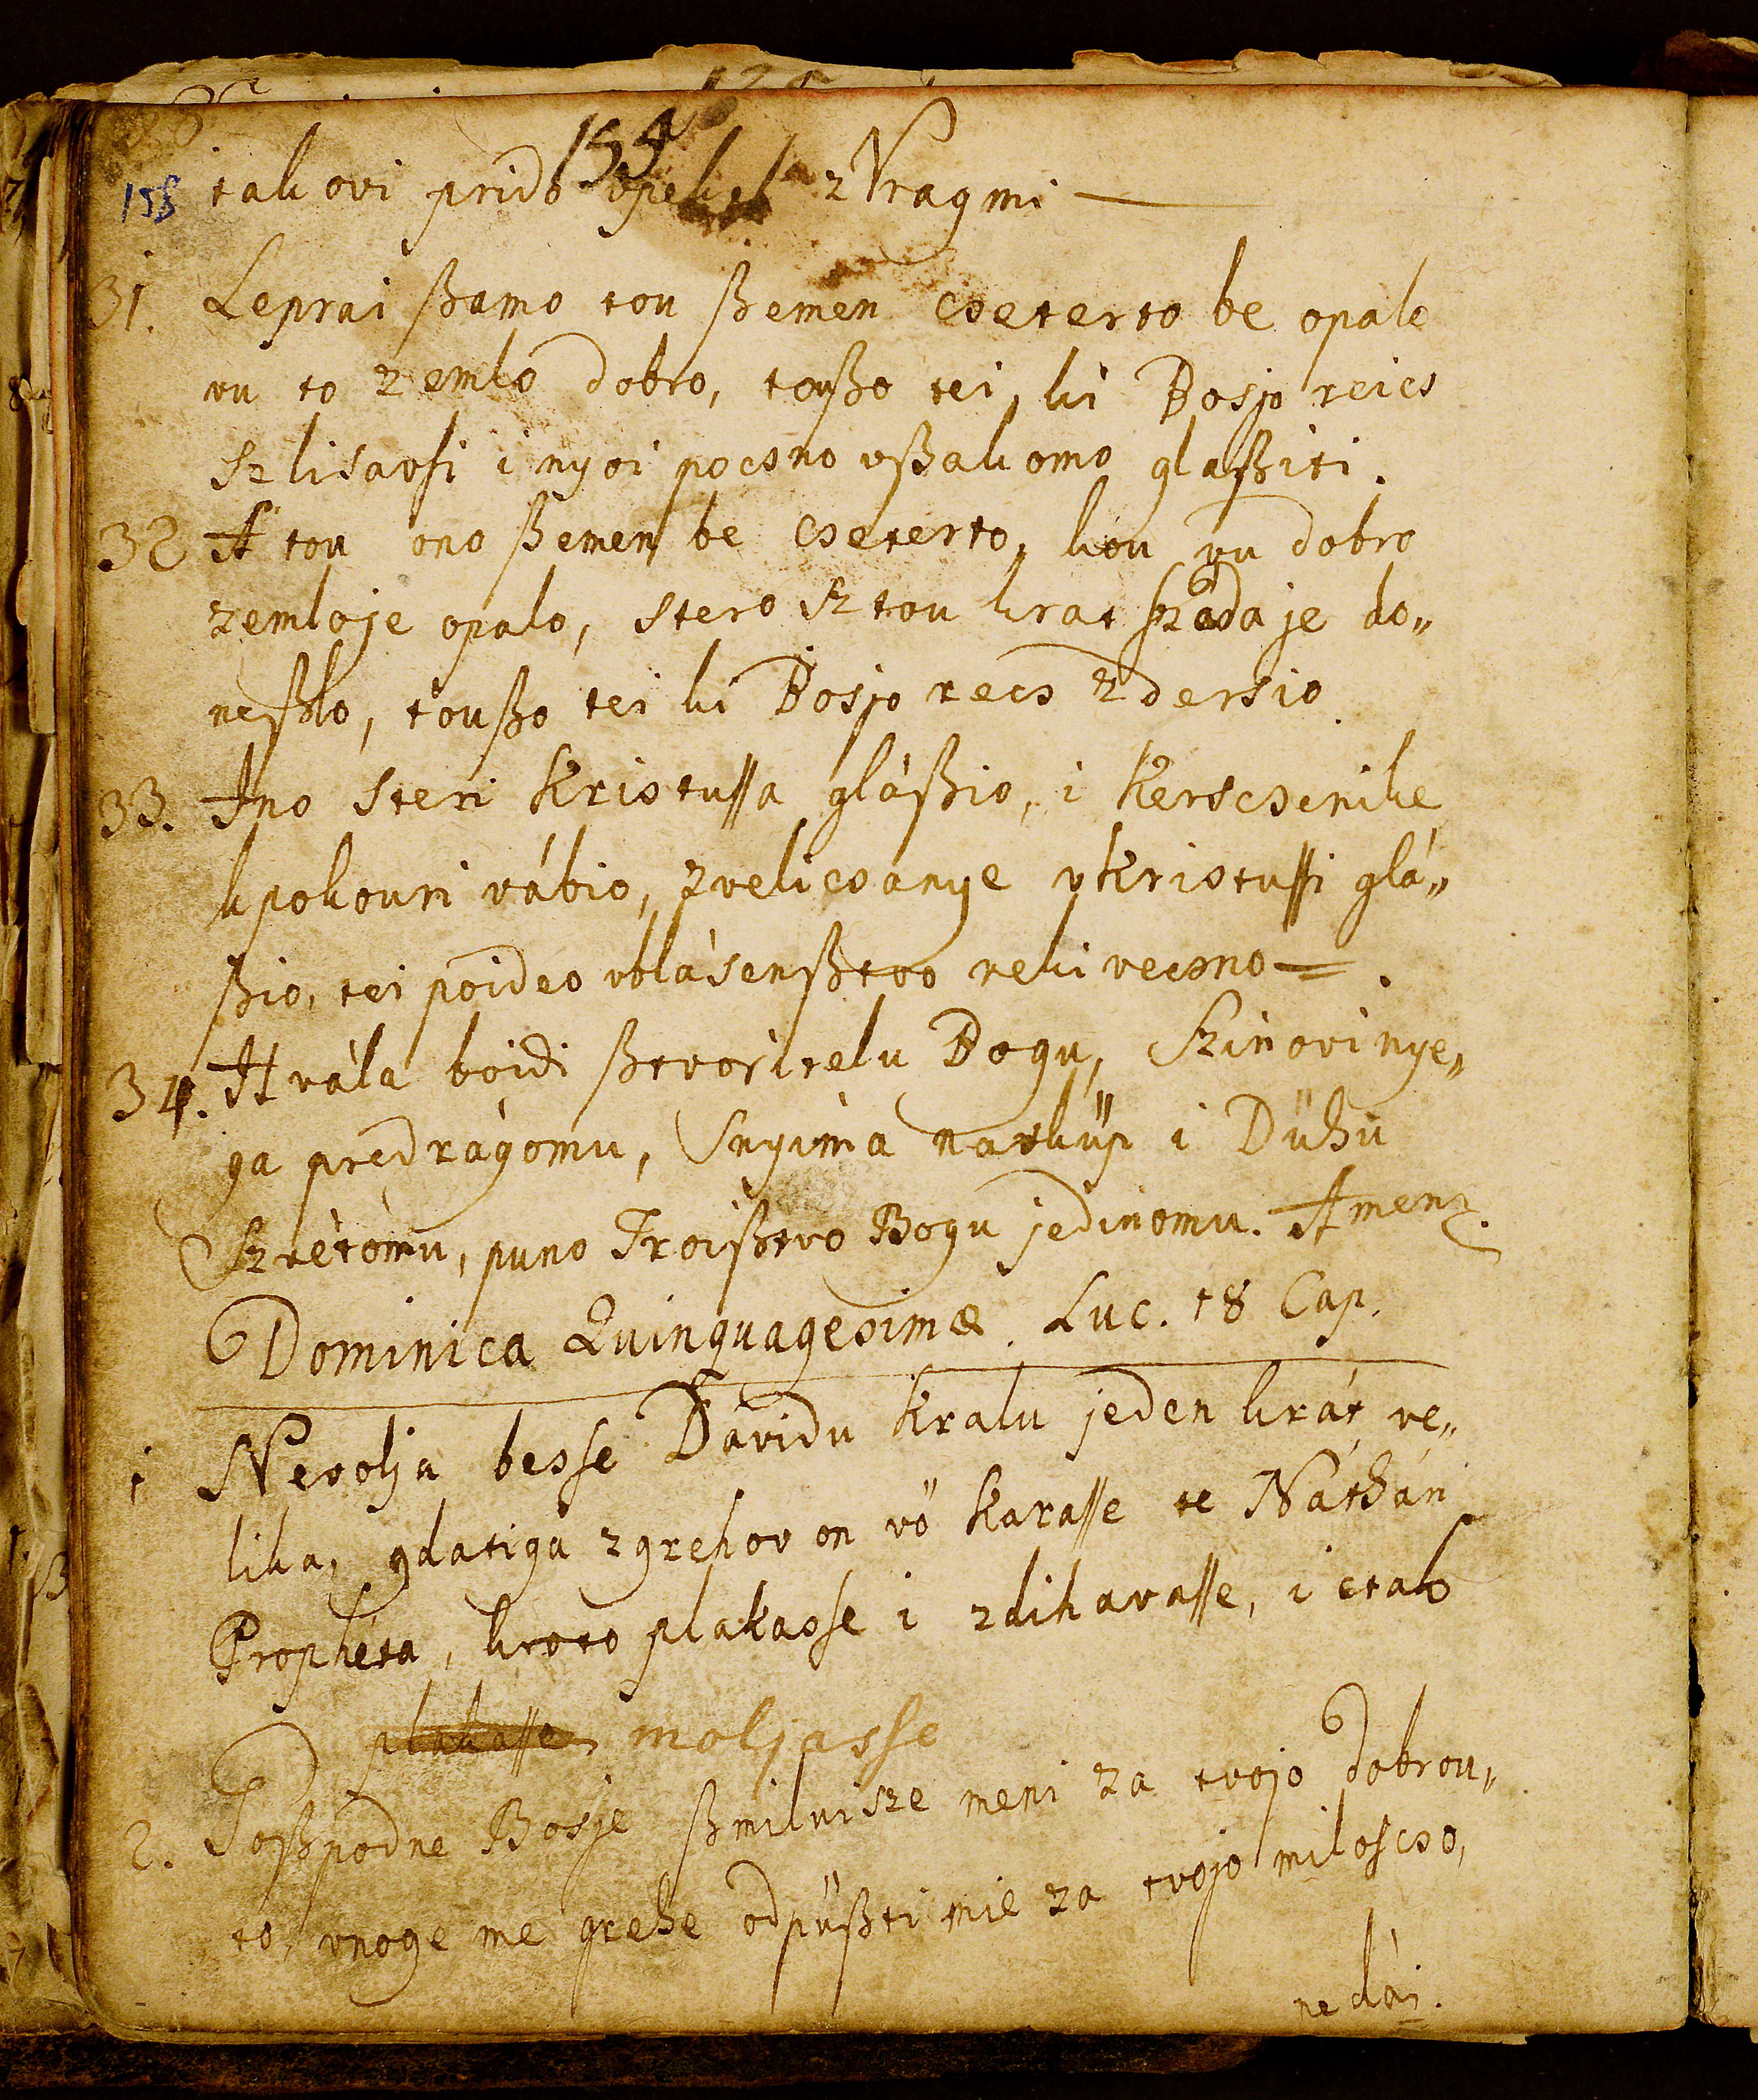 155
158 takovi prido vpekel z Vragmi —
31. Leprai ßamo tou ßemen csetерто be opalo
vu to zemlo dobro, toußo tei, ki Bosjo reics
szlisavsi i nyoi pocsno vßakomo glaßiti.
32 A tou ono ßemen be csetерto, kou vu dobro
zemlo je opalo, stero sztou krat száda je do„
neßlo, toußo tei ki Bosjo recs zdersio.
33. Ano steri Kristussa gláßio, i Kerscsenike
kpokouri vábio, zvelicsanye vkristussi glá„
ßio, tei poideo vblásenßtvo veki vecsno =.
34. Hvála boidi ßtvoritelu Bogu, Szinovi nye„
ga predrágomu, Snyima navküp i Dühu
Szvétomu, puno Troißtvo Bogu jedinomu. Amen.
Dominica Quinquagesimæ. Luc. 18 Cap.
1 Nevolja besse Dávidu Kralu jeden krát ve„
lika, gda tiga zgrehov on vö karasse te Náthán
Prophéta, kroto plakasse i zdihavasse, i etak
plakasse moljasse
2. Goßpodne Bosje ßmilui sze meni za tvojo dobrou„
to, vnoge me grehe odpüßti mie za tvojo miloscso,
ne dái.